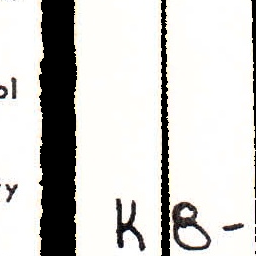 ol
y
K 8-